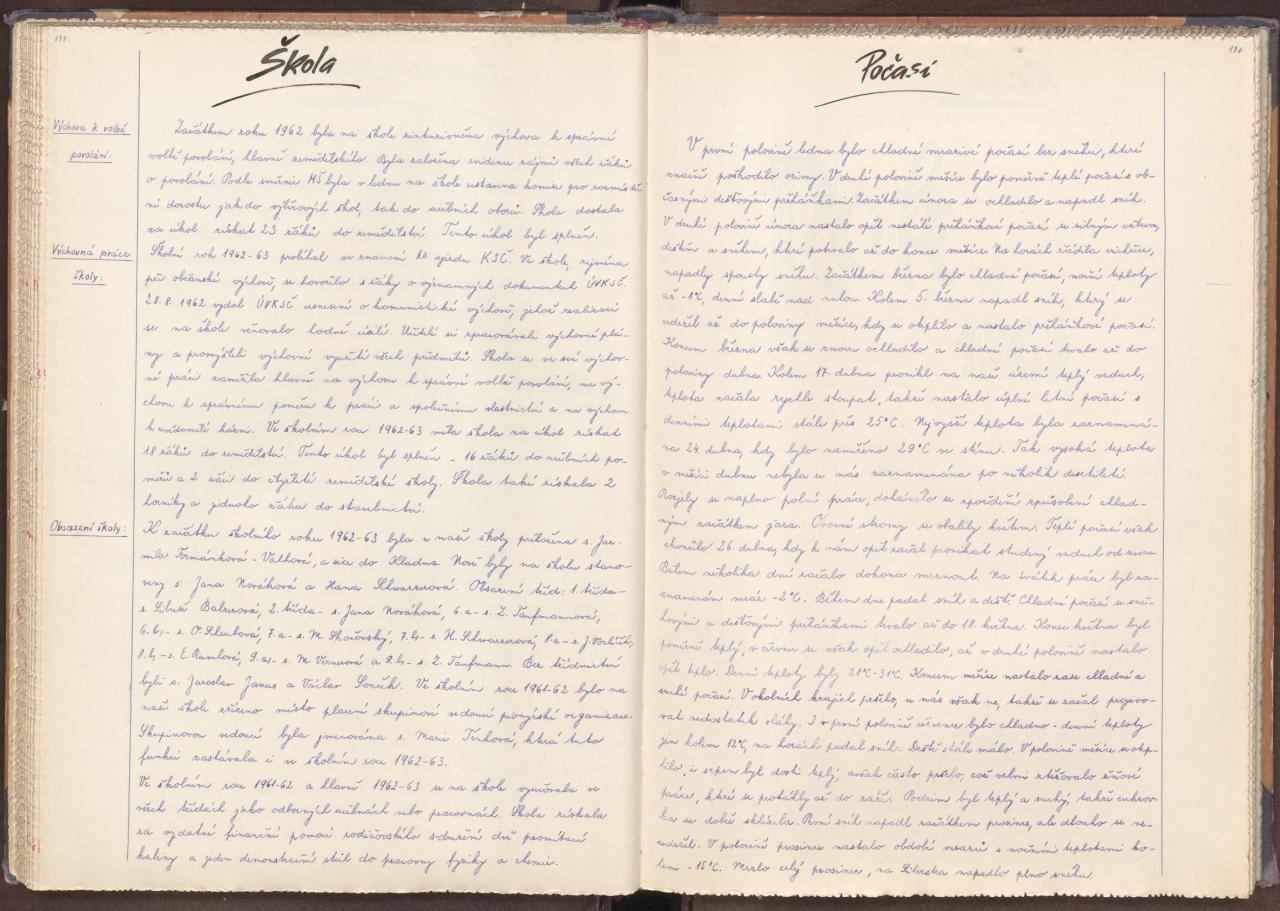 177.
Škola
Výchova k volbě
povolání:
Začátkem roku 1962 byla na škole zintenzivněna výchova k správné
volbě povolání, hlavně zemědělského. Byla založena evidence zájmů všech žáků
o povolání. Podle směrnic MŠ byla v lednu na škole ustavena komise pro rozmístě-
ní dorostu jak do výběrových škol, tak do učebních oborů. Škola dostala
za úkol získat 23 žáků do zemědělství. Tento úkol byl splněn.
Výchovná práce
školy:
Školní rok 1962-63 probíhal ve znamení XII. sjezdu KSČ. Ve škole, zejména
při občanské výchově, se hovořilo s žáky o významných dokumentech ÚVKSČ.
28.8. 1962 vydal ÚVKSČ usnesení o komunistické výchově, jehož realizaci
se na škole věnovalo hodně úsilí. Učitelé si zpracovávali výchovné plá-
ny a promýšleli výchovné využití všech předmětů. Škola se ve své výchov-
né práci zaměřila hlavně na výchovu k správné volbě povolání, na vý-
chovu k správnému poměru k práci a společnému vlastnictví a na výchovu
k uvědomělé kázni. Ve školním roce 1962-63 měla škola za úkol získat
18 žáků do zemědělství. Tento úkol byl splněn - 16 žáků do učebních po-
měrů a 2 žáci do čtyřleté zemědělské školy. Škola také získala 2
horníky a jednoho žáka do stavebnictví.
Obsazení školy:
K začátku školního roku 1962-63 byla z naší školy přeložena s. Jar-
mila Formánková - Vaťková, a sice do Kladna. Nově byly na školu stano-
veny s. Jana Nováková a Hana Schwarzerová. Obsazení tříd: 1. třída-
s. Libuše Balzerová, 2. třída - s. Jana Nováková, 6.a - s. Z. Taufmannová,
6.b, - s. O. 7.a - s. M. Skočovský, 7.b, - s. H. Schwarzerová, 8.a - s. J.
8.b, - s. E. Rumlová, 9.a, - s. M. Vernerová a 9.b, - s. Z. Taufmann. Bez třídnictví
byli s. Jaroslav Janus a Václav Souček. Ve školním roce 1961-62 bylo na
naší škole zřízeno místo placené skupinové vedoucí pionýrské organizace.
Skupinovou vedoucí byla jmenována s. Marie Trnková, která tuto
funkci zastávala i ve školním roce 1962-63.
Ve školním roce 1961-62 a hlavně 1962-63 se na škole vyučovalo ve
všech třídách jako odborných učebnách nebo pracovnách. Škola získala
za vydatné finanční pomoci rodičovského sdružení dvě promítací
kabiny a jeden demonstrační stůl do pracovny fyziky a chemie.
178.
Počasí
V první polovině ledna bylo chladné mrazivé počasí bez sněhu, které
značně poškodilo ozimy. V druhé polovině měsíce bylo poměrně teplé počasí s ob-
časnými dešťovými přeháňkami. Začátkem února se ochladilo a napadl sníh.
V druhé polovině února nastalo opět nestálé přeháňkové počasí se silným větrem,
deštěm a sněhem, které potrvalo až do konce měsíce. Na horách řádila vichřice,
napadly spousty sněhu. Začátkem března bylo chladné počasí, noční teploty
až -1°C, denní slabě nad nulou. Kolem 5. března napadl sníh, který se
udržel až do poloviny měsíce, kdy se oteplilo a nastalo přeháňkové počasí.
Koncem března však se znovu ochladilo a chladné počasí trvalo až do
poloviny dubna. Kolem 17. dubna pronikl na naše území teplý vzduch,
teplota začala rychle stoupat, takže nastalo úplné letní počasí s
denními teplotami stále přes 25°C. Nejvyšší teplota byla zaznamená-
na 24. dubna, kdy bylo naměřeno 29°C ve stínu. Tak vysoká teplota
v měsíci dubnu nebyla u nás zaznamenána po několik desetiletí.
Rozjely se naplno polní práce, dohánělo se zpoždění způsobené chlad-
ným začátkem jara. Ovocné stromy se obalily květem. Teplé počasí však
skončilo 26. dubna, kdy k nám opět začal pronikat studený vzduch od severu.
Během několika dní začalo dokonce mrznout. Na svátek práce byl za-
znamenán mráz -2°C. Během dne padal sníh a déšť. Chladné počasí se sně-
hovými a dešťovými přeháňkami trvalo až do 18. května. Konec května byl
poměrně teplý, v červnu se však opět ochladilo, až v druhé polovině nastalo
opět teplo. Denní teploty byly 28°C-31°C. Koncem měsíce nastalo zase chladné a
suché počasí. V okolních krajích pršelo, u nás však ne, takže se začal projevo-
vat nedostatek vláhy. I v první polovině července bylo chladno - denní teploty
jen kolem 12°C, na horách padal sníh. Deště stále málo. V polovině měsíce se otep-
lilo, i srpen byl dosti teplý, avšak často pršelo, což velmi ztěžovalo žňové
práce, které se protáhly až do září. Podzim byl teplý a suchý, takže cukrov-
ka se dobře sklízela. První sníh napadl začátkem prosince, ale dlouho se ne-
udržel. V polovině prosince nastalo období mrazů s nočními teplotami ko-
lem -15°C. Mrzlo celý prosinec, na Silvestra napadlo plno sněhu.